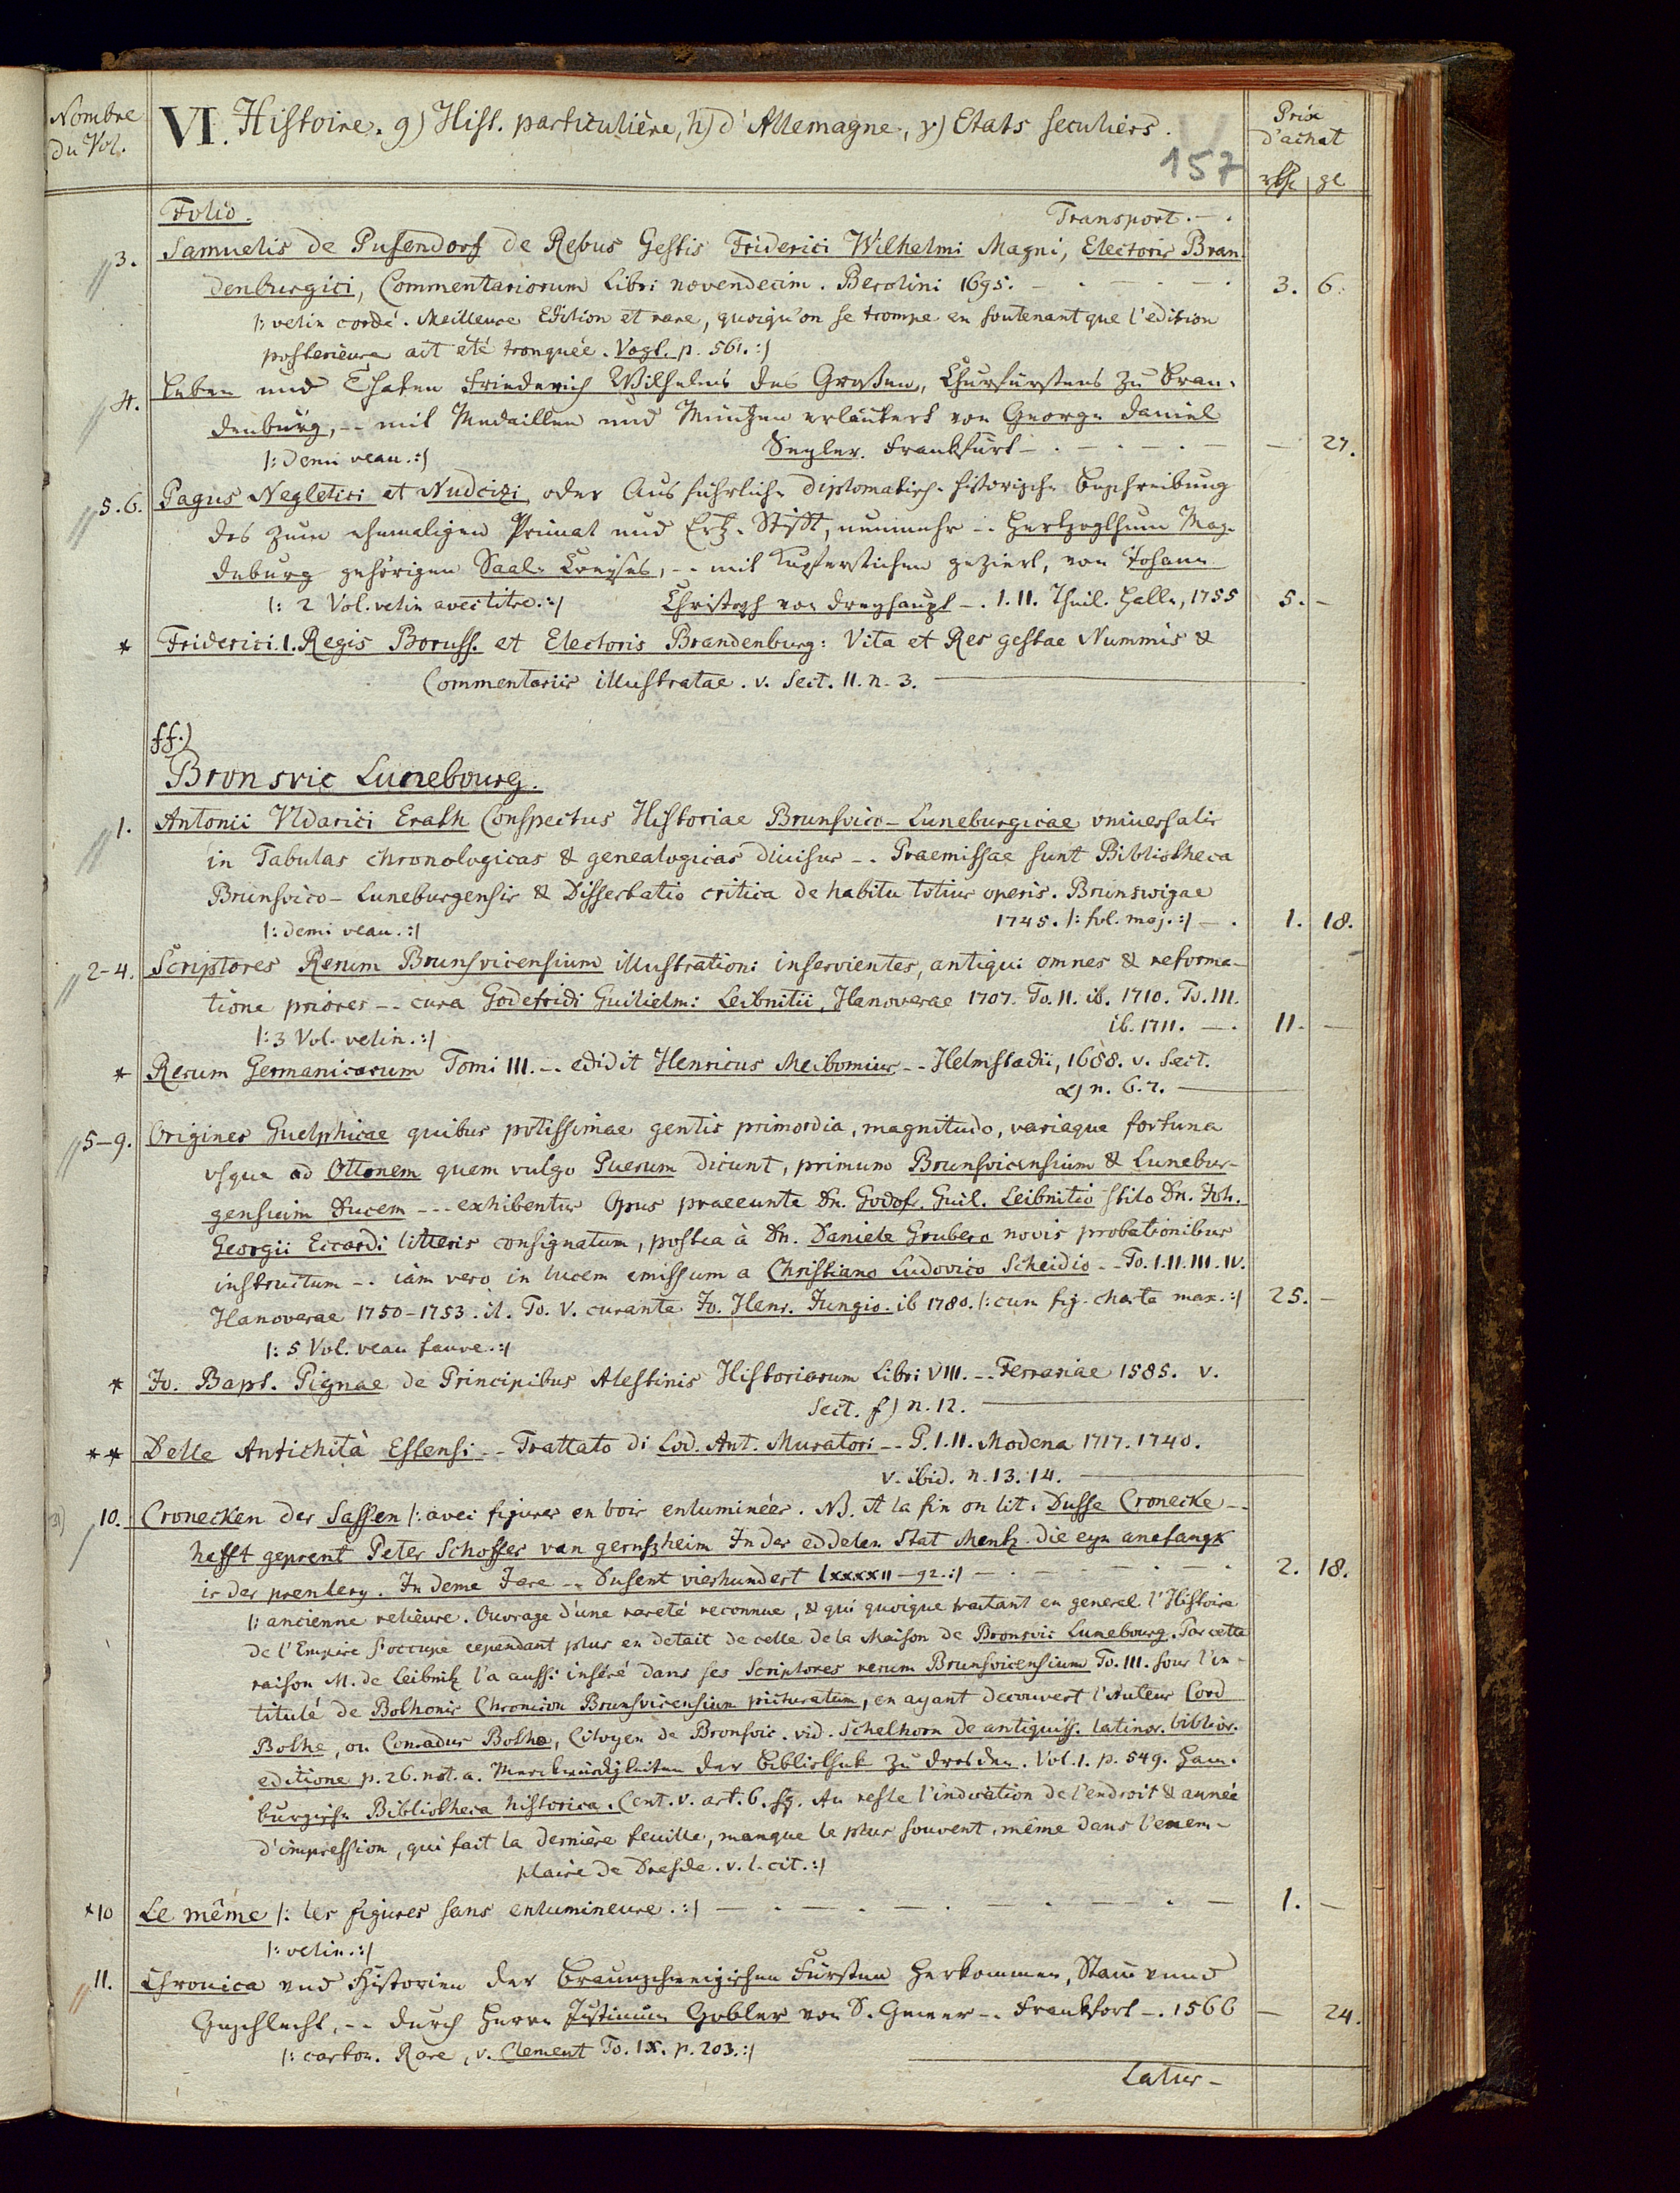 Nombre
du Vol.
VI. Histoire. g) Hist. particulière, h) d'Allemagne, γ) Etats seculiers.
157
Prix
d'achat
rthl gl
Folio. Transport. - .
3. Samuelis de Pufendorf de Rebus Gestis Friderici Wilhelmi Magni, Electoris Bran-
denburgici, Commentariorum Libri novendecim. Berolini 1695. - . - . - . 3. 6.
/: velin cordé. Meilleure Edition et rare, quoiqu'on se trompe en soutenant que l'edition
posterieure ait eté tronquée. Vogt. p. 561. :/
4. Leben und Thaten Friederich Wilhelms des Großen, Churfürstens zu Bran-
denburg, -- mit Medaillen und Müntzen erläutert von George Daniel
/: demi veau. :/ Seyler. Frankfurt - . - . - . - - 27.
5.6. Pagus Neletici et Nudzici, oder Ausführliche diplomatisch-historische Beschreibung
des zum ehemaligen Primat und Ertz-Stifft, nunmehr -. Hertzogthum Mag-
deburg gehörigen Saal-Creyses, -- mit Kupferstichen geziert, von Johann
/: 2 Vol. velin avec titre. :/ Christoph von Dreyhaupt -. I. II. Theil. Halle, 1755 5. -
* Friderici. I. Regis Boruss. et Electoris Brandenburg: Vita et Res gestae Nummis &
Commentariis illustratae. v. Sect. II. n. 3.
ff.)
Bronsvic Lunebourg.
1. Antonii Vldarici Erath Conspectus Historiae Brunsvico-Luneburgicae vniversalis
in Tabulas chronologicas & genealogicas divisus -. Praemissae sunt Bibliotheca
Brunsvico-Luneburgensis & Dissertatio critica de habitu totius operis. Brunswigae
/: demi veau. :/ 1745. /: fol. maj. :/ - . 1. 18.
2-4. Scriptores Rerum Brunsvicensium illustrationi inservientes, antiqui omnes & reforma-
tione priores -- cura Godefridi Guilielmi Leibnitii, Hanoverae 1707. To. II. ib. 1710. To. III.
/: 3 Vol. velin. :/ ib. 1711. - . 11. -
* Rerum Germanicarum Tomi III. -- edidit Henricus Meibomius -- Helmstadii, 1688. v. Sect.
α) n. 6.7.
5-9. Origines Guelphicae quibus potissimae gentis primordia, magnitudo, variaque fortuna
vsque ad Ottonem quem vulgo Puerum dicunt, primum Brunsvicensium & Lunebur-
gensium Ducem --- exhibentur Opus praeeunte Dn. Godofr. Guil. Leibnitio stilo Dn. Joh.
Georgii Eccardi litteris consignatum, postea à Dn. Daniele Grubero novis probationibus
instructum -. iam vero in lucem emissum a Christiano Ludovico Scheidio -. To. I. II. III. IV.
Hanoverae 1750-1753. it. To. V. curante Jo. Henr. Jungio. ib 1780. /: cum fig. charta max. :/ 25. -
/: 5 Vol. veau fauve. :/
* Jo. Bapt. Pignae de Principibus Atestinis Historiarum Libri VIII. -- Ferrariae 1585. v.
Sect. f) n. 12.
** Delle Antichità Estensi -- Trattato di Lod. Ant. Muratori -- P. I. II. Modena 1717. 1740.
v. ibid. n. 13. 14.
10. Cronecken der Sassen /: avec figures en bois enluminées. NB. A la fin on lit: Dusse Cronecke -.
hefft geprent Peter Schoffer van gernszheim In der eddelen Stat Mentz. die eyn anefangk
is der prentery. In deme Jare -- Dusent vierhundert lxxxxII - 92. :/ - . - . - . 2. 18.
/: ancienne relieure. Ouvrage d'une rareté reconnue, & qui quoique traitant en general l'Histoire
de l'Empire s'occupe cependant plus en detail de celle de la Maison de Bronsvic Lunebourg. Par cette
raison M. de Leibnitz l'a aussi inséré dans ses Scriptores rerum Brunsvicensium To. III. sous l'in-
titulé de Bothonis Chronicon Brunsvicensium picturatum, en ayant decouvert l'Auteur Cord
Bothe, ou Conradus Botho, Citoyen de Bronsvic. vid. Schelhorn de antiquiss. latinor. biblior.
editione p. 26. not. a. Merckwürdigkeiten der Bibliothek zu Dresden. Vol. I. p. 549. Ham-
burgische Bibliotheca historica. Cent. V. art. 6. sq. Au reste l'indication de l'endroit & année
d'impression, qui fait la dernière feuille, manque le plus souvent, même dans l'exem-
plaire de Dresde. v. l. cit. :/
*10 Le même /: les figures sans enlumineure. :/ - . - . - . - . - . - 1. -
/: velin. :/
11. Chronica und Historien der Braunschweigischen Fürsten Herkommen, Stam vnnd
Geschlecht, -- durch Herrn Justinum Gobler von S. Gewer -. Frankfort -. 1566 - 24.
/: carton. Rare, v. Clement To. IX. p. 203. :/
Latus -